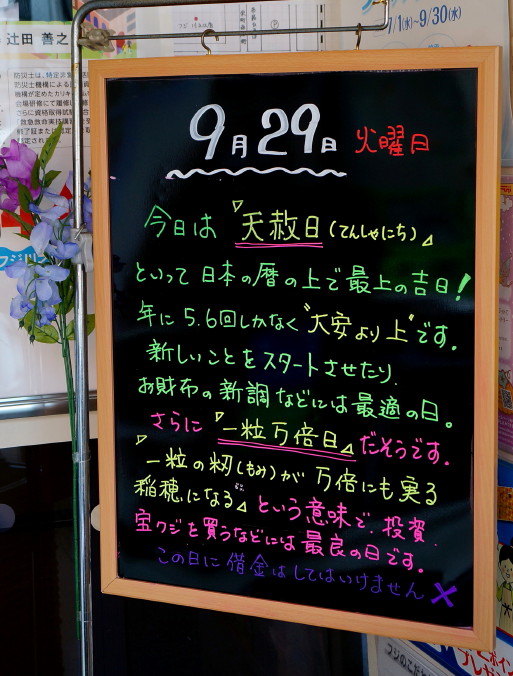 辻田 善之
7/1(水)~9/30(水)
9月29日 火曜日
今日は『天赦日(てんしゃにち)』
といって 日本の暦の上で最上の吉日!
年に5.6回しかなく"大安より上"です。
新しいことをスタートさせたり、
お財布の新調などには最適の日。
さらに『一粒万倍日』だそうです。
『一粒の籾(もみ)が万倍にも実る
稲穂になる』という意味で、投資、
宝クジを買うなどには最良の日です。
この日に借金はしてはいけません×